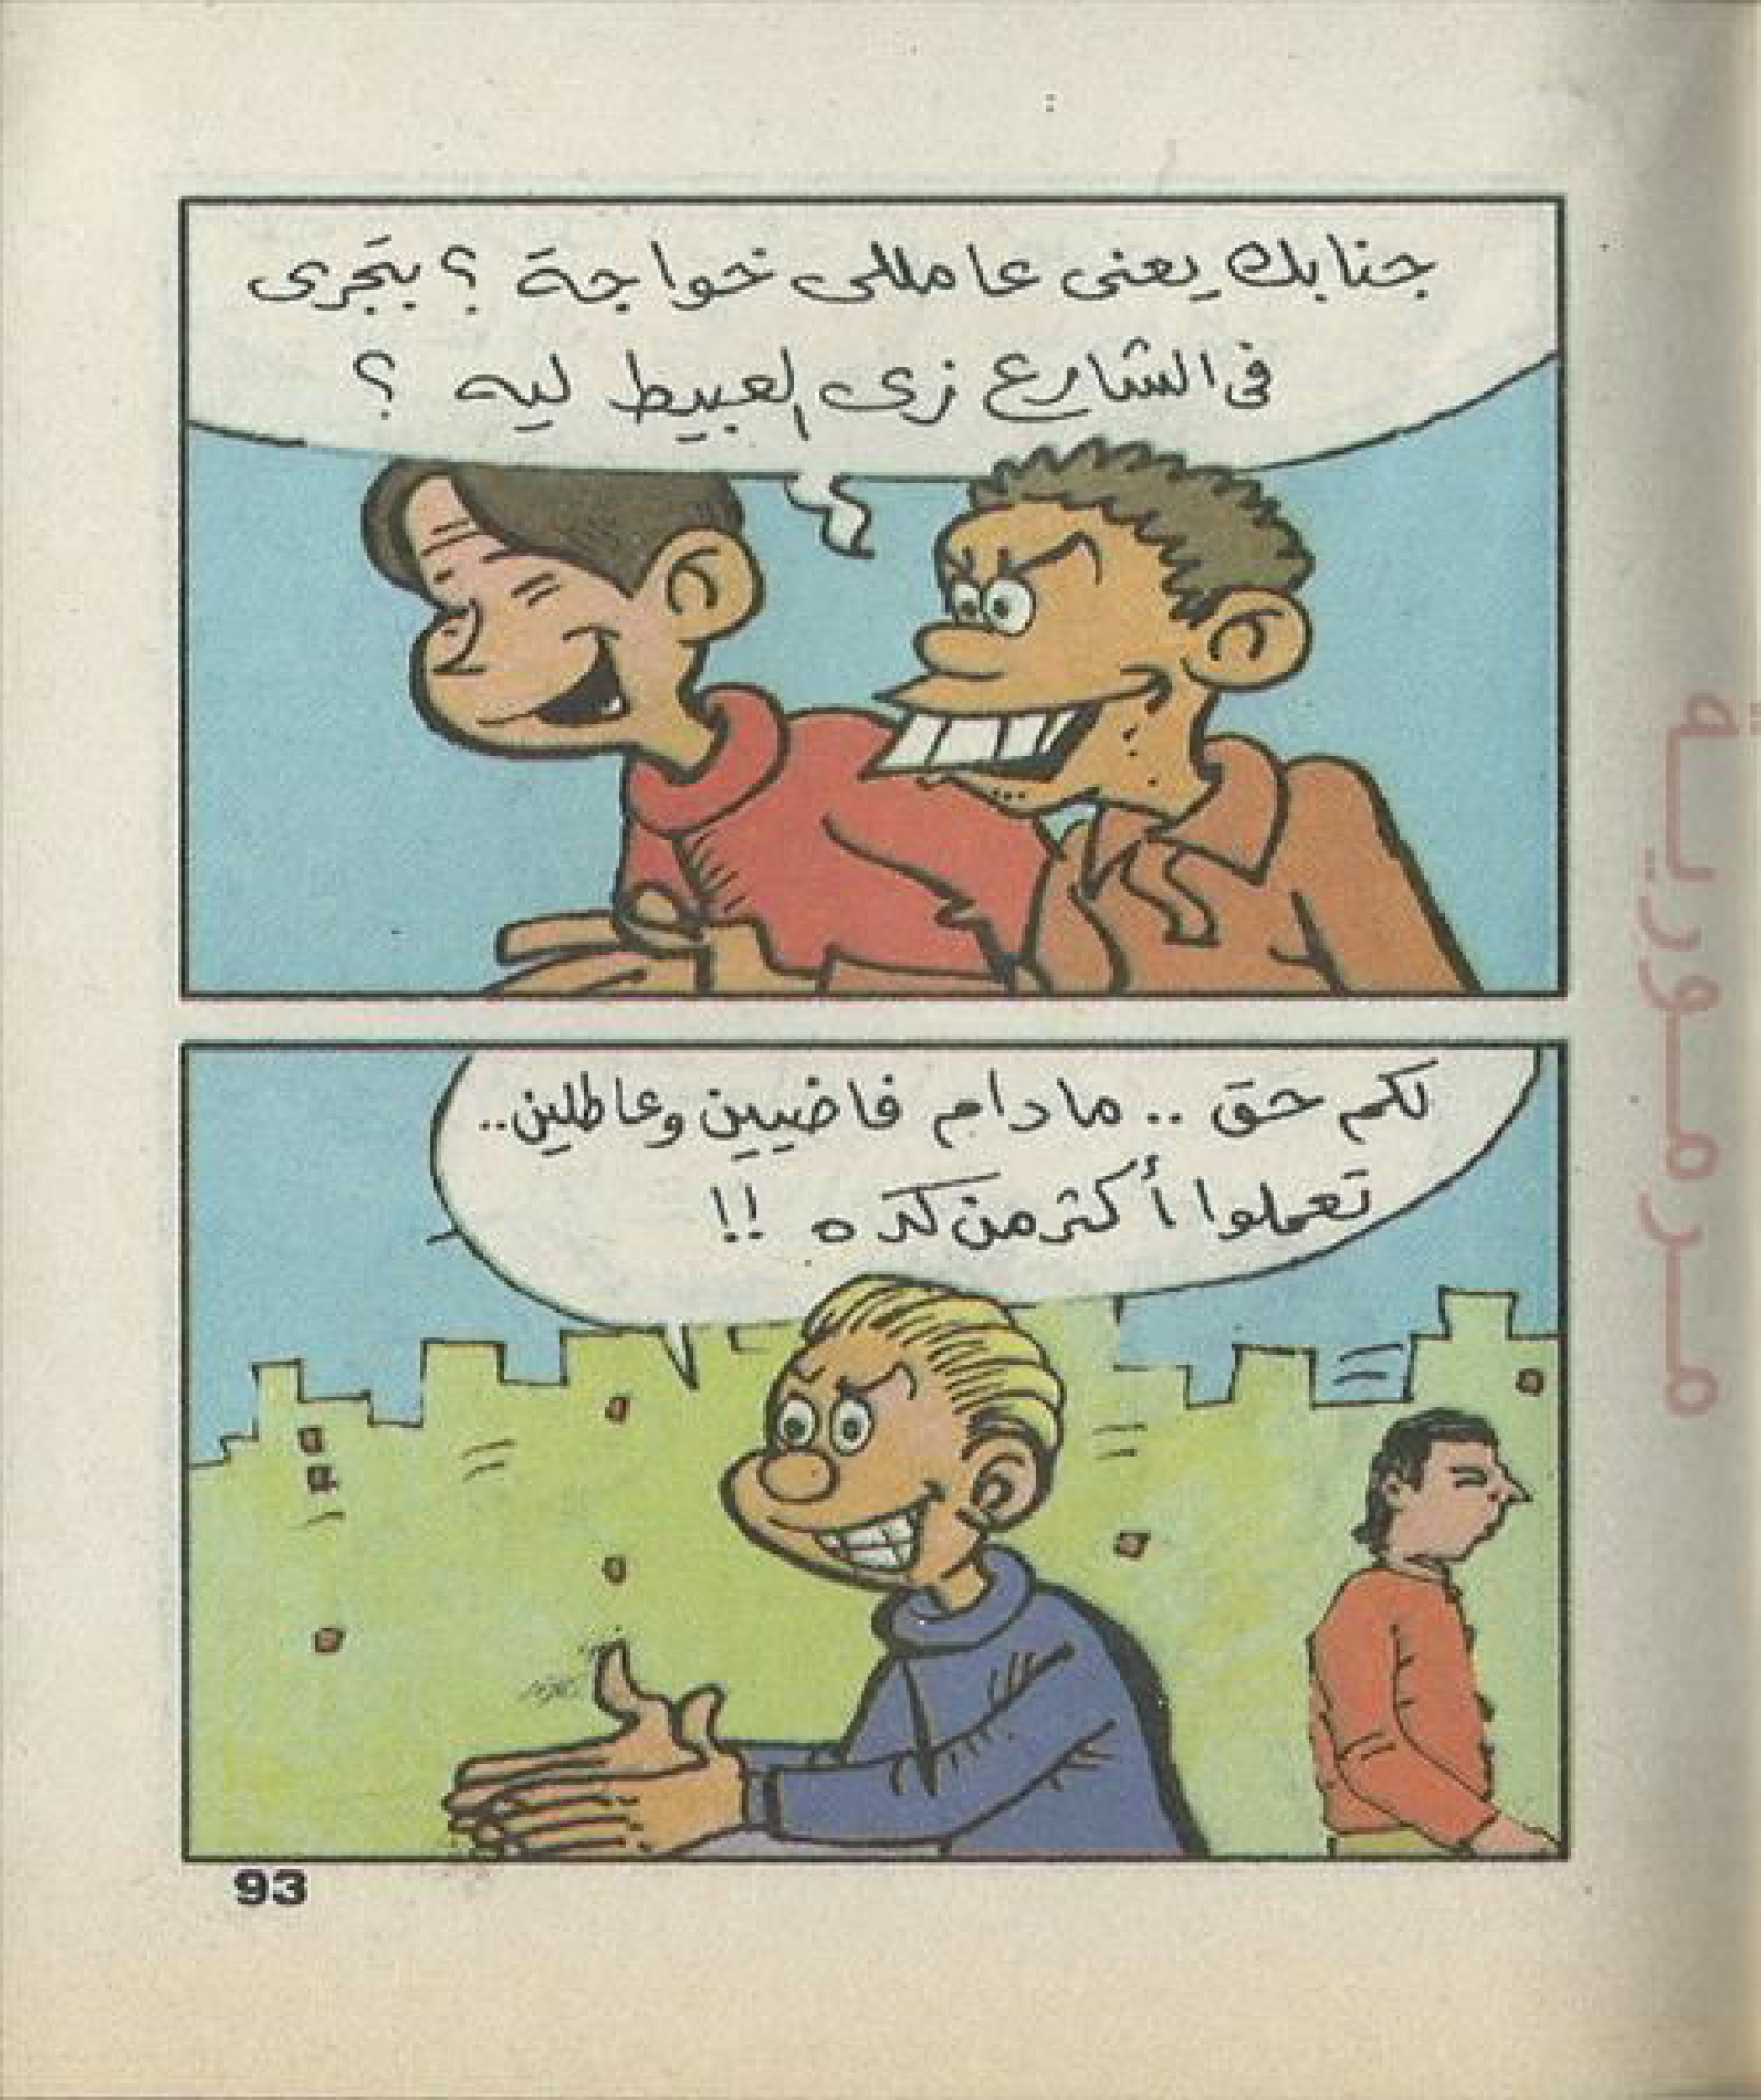 جنابك يعنى عامللى خواجة ؟ بتجرى
فى الشارع زى العبيط ليه ؟
لكم حق .. مادام فاضيين وعاطلين..
تعملوا أكتر من كده !!
93
مرمورية